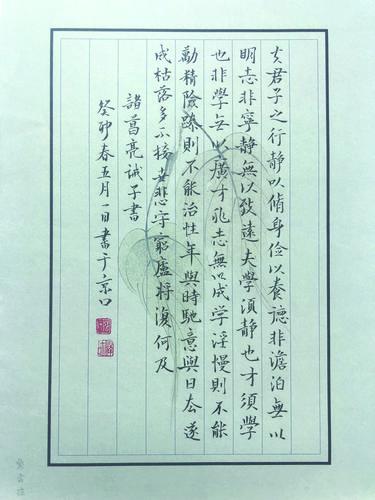 夫君子之行静以脩身俭以養德非澹泊無以
明志非寧静無以致遠夫學須静也才須學
也非學無以廣才非志無以成学淫慢則不能
勵精險躁則不能治性年與時馳意與日去遂
成枯落多不接世悲守窮廬將復何及
諸葛亮诫子書
癸卯春五月一日書于京口